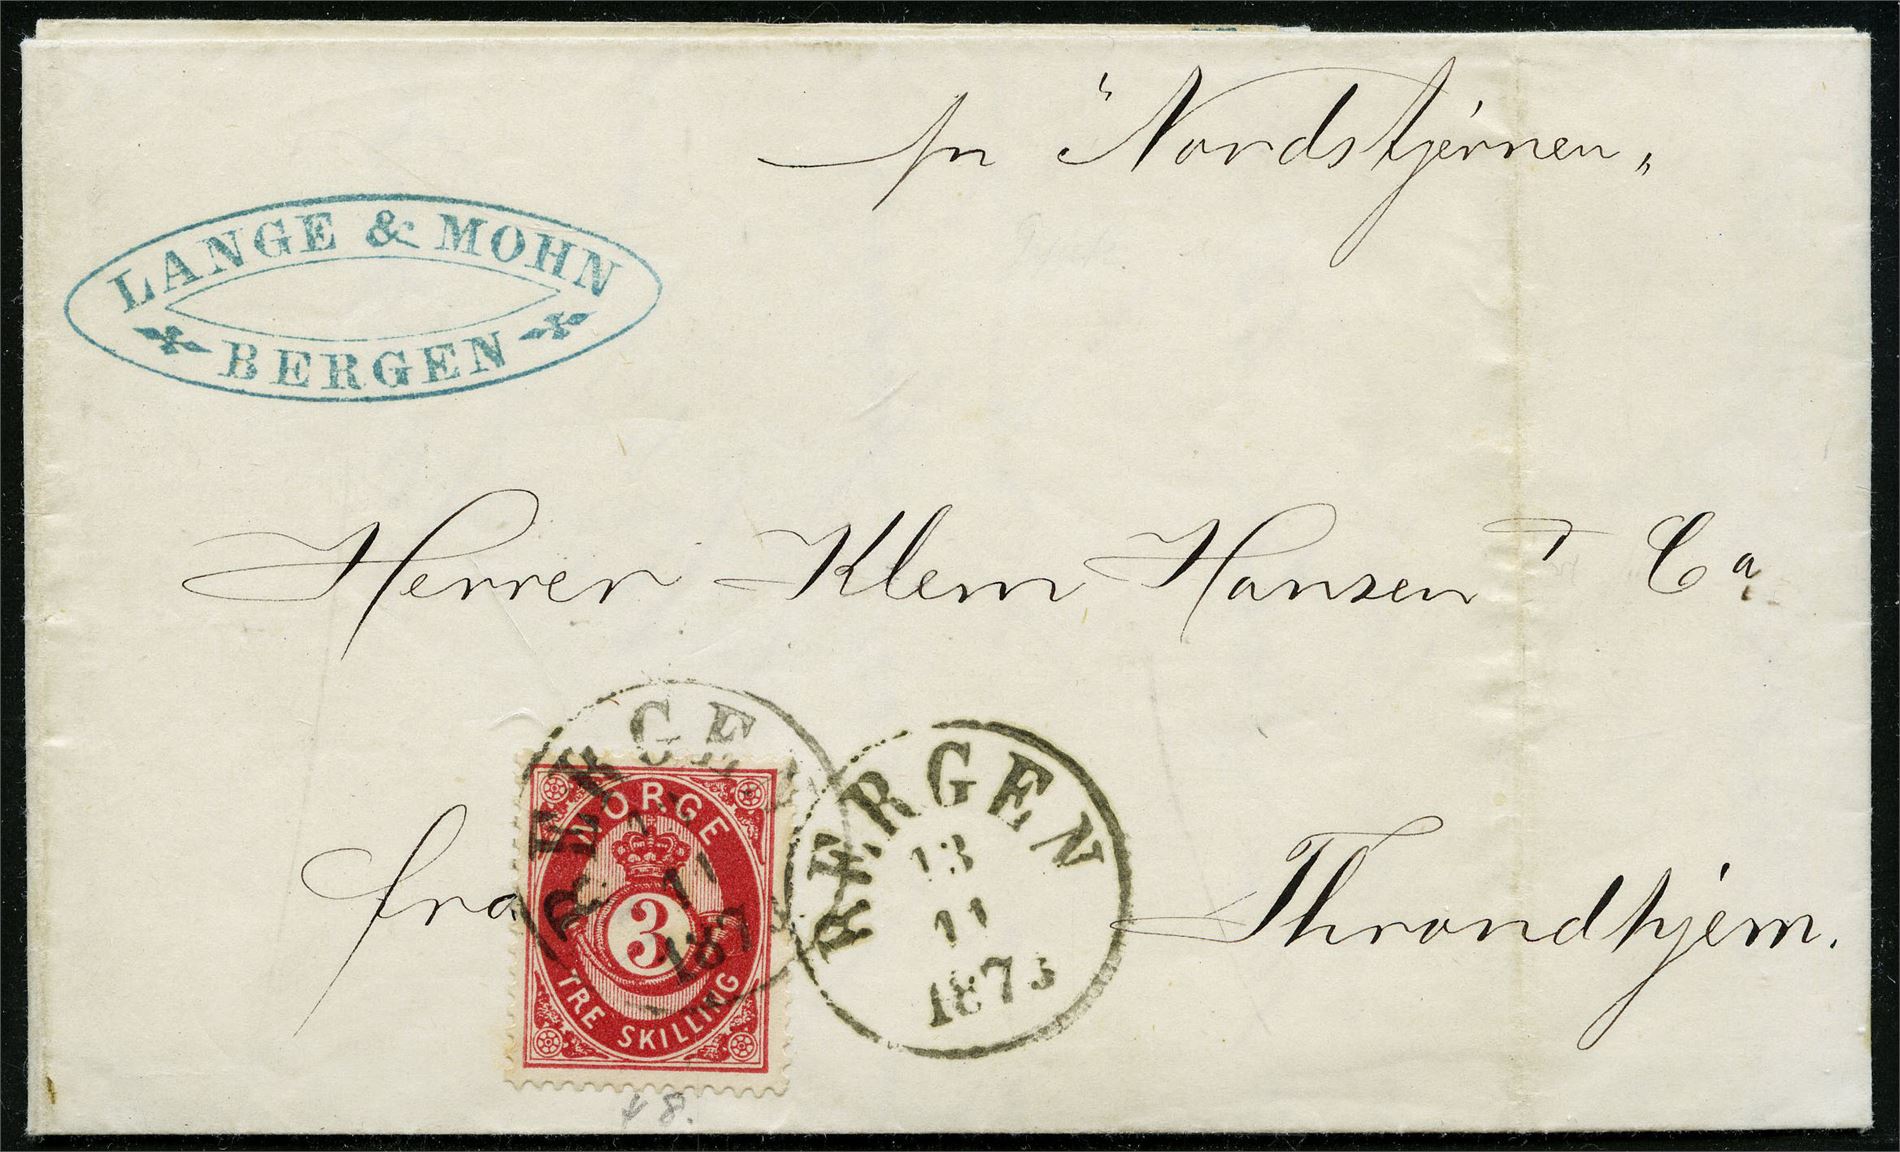 pr "Nordstjernen"
LANGE & MOHN
BERGEN
Herrer Klem Hansen & Co
fra
Throndhjem.
BERGEN
11
187
NORGE
3
TRE SKILLING
BERGEN
13
11
1873
8.